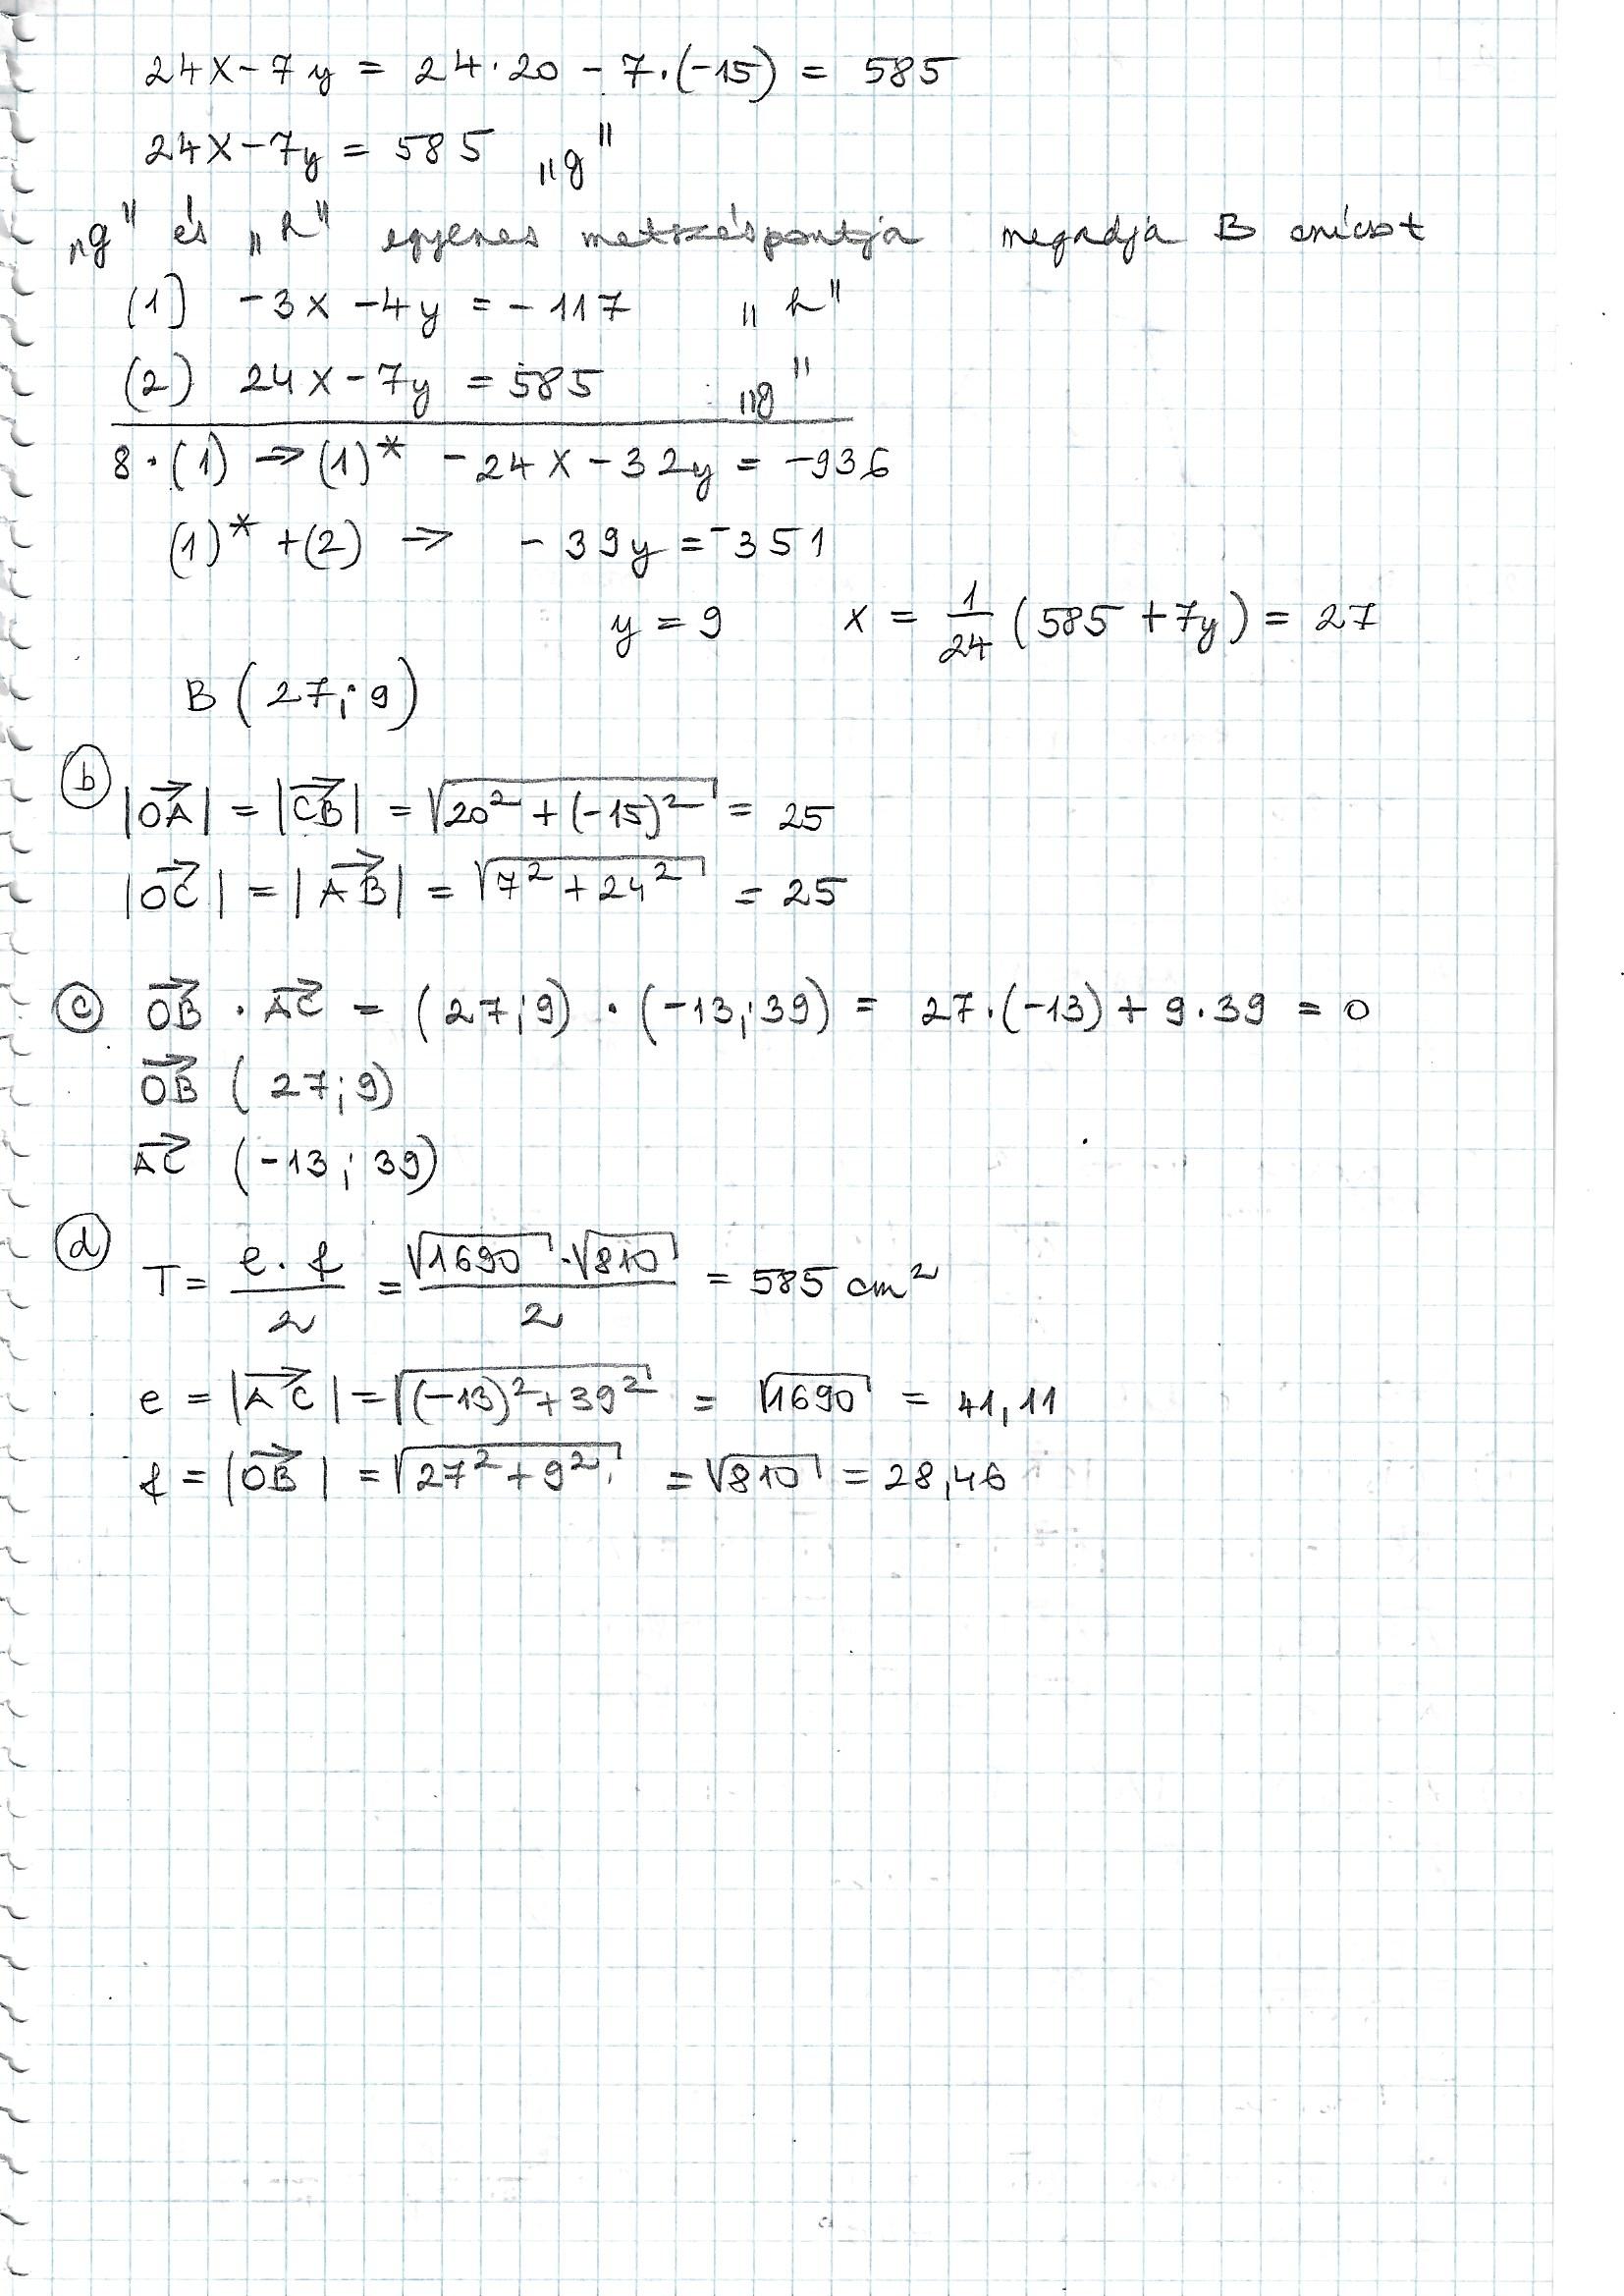 24x-7y = 24·20 - 7·(-15) = 585
24x-7y = 585 „g"
„g" és „h" egyenes metszéspontja megadja B csúcsot
(1) -3x -4y = -117 „h"
(2) 24x-7y = 585 „g"
8·(1) ⇒ (1)* -24x-32y = -936
(1)* +(2) ⇒ -39y = -351
y = 9 x = 1/24 (585 + 7y) = 27
B (27; 9)
b |OA| = |CB| = √(20² + (-15)²) = 25
|OC| = |AB| = √(7² + 24²) = 25
c OB · AC = (27; 9) · (-13; 39) = 27·(-13) + 9·39 = 0
OB (27; 9)
AC (-13; 39)
d T = e·f/2 = √1690 · √810/2 = 585 cm²
e = |AC| = √((-13)² + 39²) = √1690 = 41,11
f = |OB| = √(27² + 9²) = √810 = 28,46